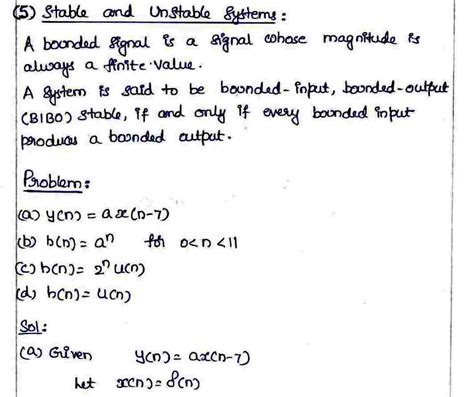 (5) Stable and Unstable Systems :
A bounded signal is a signal whose magnitude is
always a finite value.
A system is said to be bounded-input, bounded-output
(BIBO) stable, if and only if every bounded input
produces a bounded output.
Problem:
(a) y(n) = ax(n-7)
(b) h(n) = aⁿ for 0<n<11
(c) h(n) = 2ⁿ u(n)
(d) h(n) = u(n)
Sol:
(a) Given y(n) = ax(n-7)
Let x(n) = δ(n)